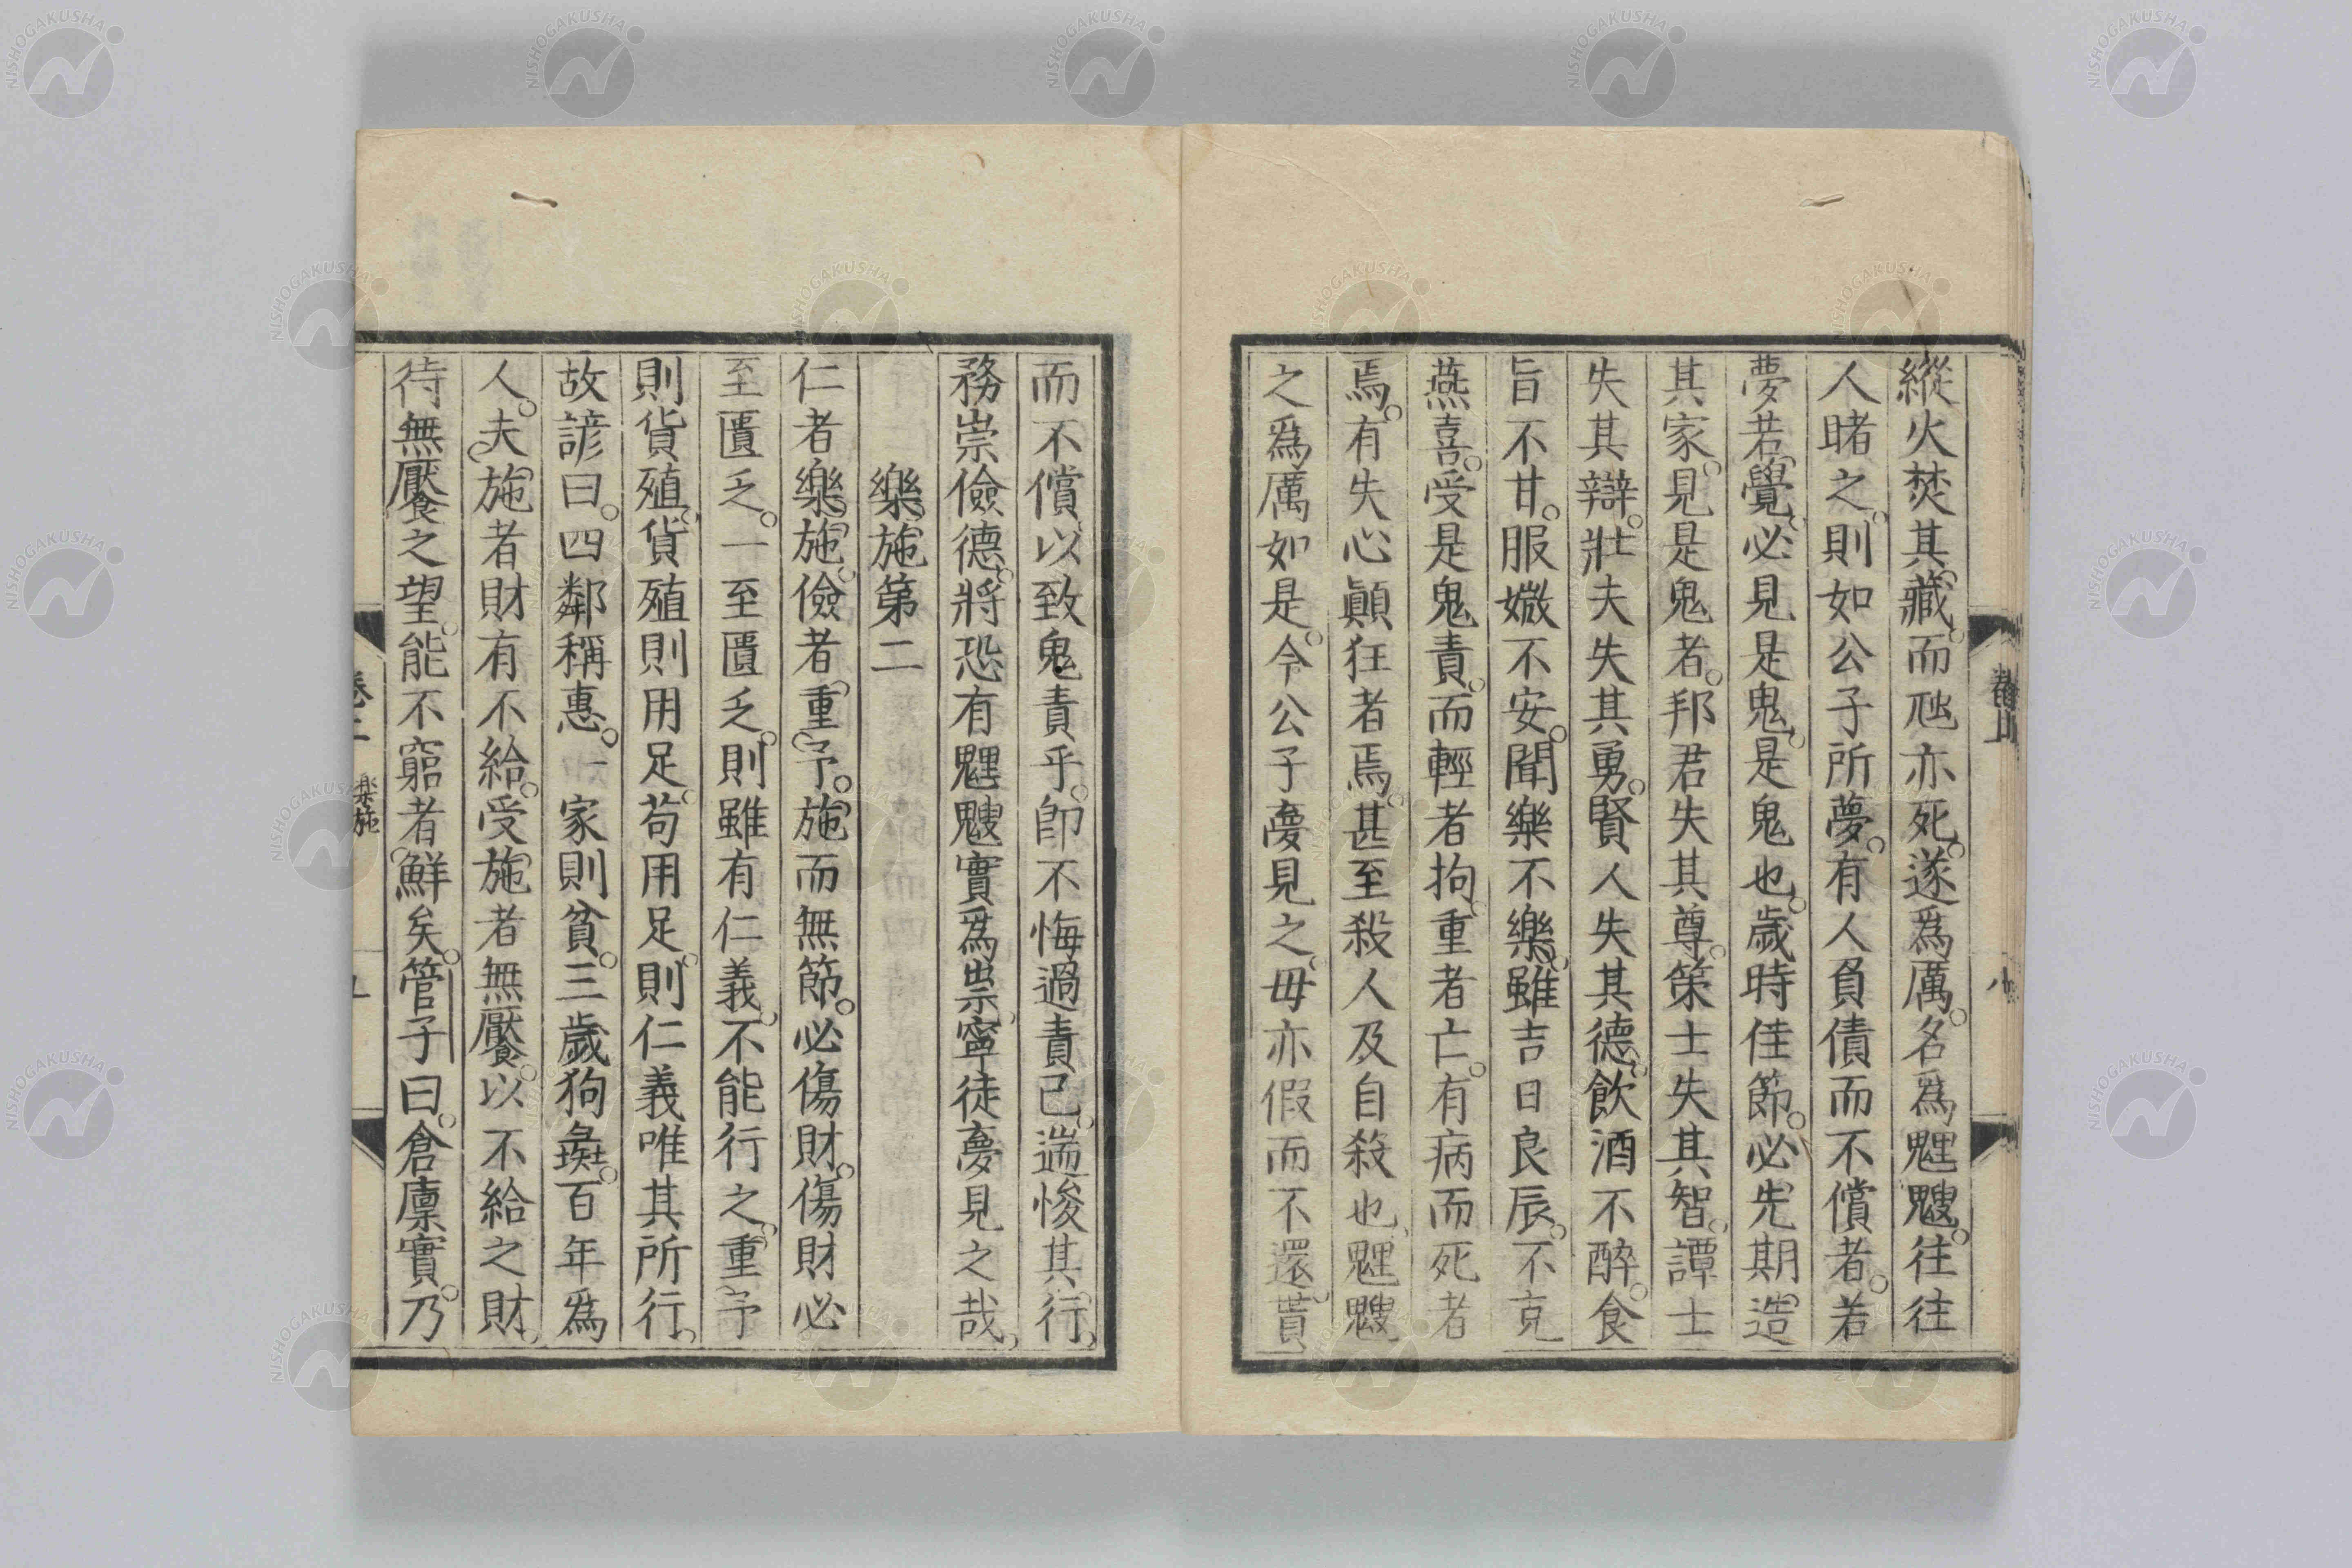 縱火焚其藏。而虺亦死。遂爲厲。名爲魓魓。往往
人睹之。則如公子所夢。有人負債而不償者。若
夢若覺。必見是鬼。是鬼也。歲時佳節。必先期造
其家。見是鬼者。邦君失其尊。策士失其智。譚士
失其辯。壯夫失其勇。賢人失其德。飲酒不醉。食
旨不甘。服媺不安。聞樂不樂。雖吉日良辰。不克
燕喜。受是鬼責。而輕者拘。重者亡。有病而死者
焉。有失心顚狂者焉。甚至殺人及自殺也。
之爲厲如是。今公子夢見之。毋亦假而不還。貰
而不償。以致鬼責乎。卽不悔過責已。遄悛其行。
務崇儉德。將恐有 實爲祟。寧徒夢見之哉。
樂施第二
仁者樂施。儉者重予。施而無節。必傷財。傷財必
至匱乏。一至匱乏。則雖有仁義。不能行之。重予
則貨殖。貨殖則用足。苟用足。則仁義唯其所行。
故諺曰。四鄰稱惠。一家則貧。三歲狗彘。百年爲
人。夫施者財有不給。受施者無饜。以不給之財。
待無饜之望。能不窮者鮮矣。管子曰。倉廩實。乃
樂施
NISHOGAKUSHA